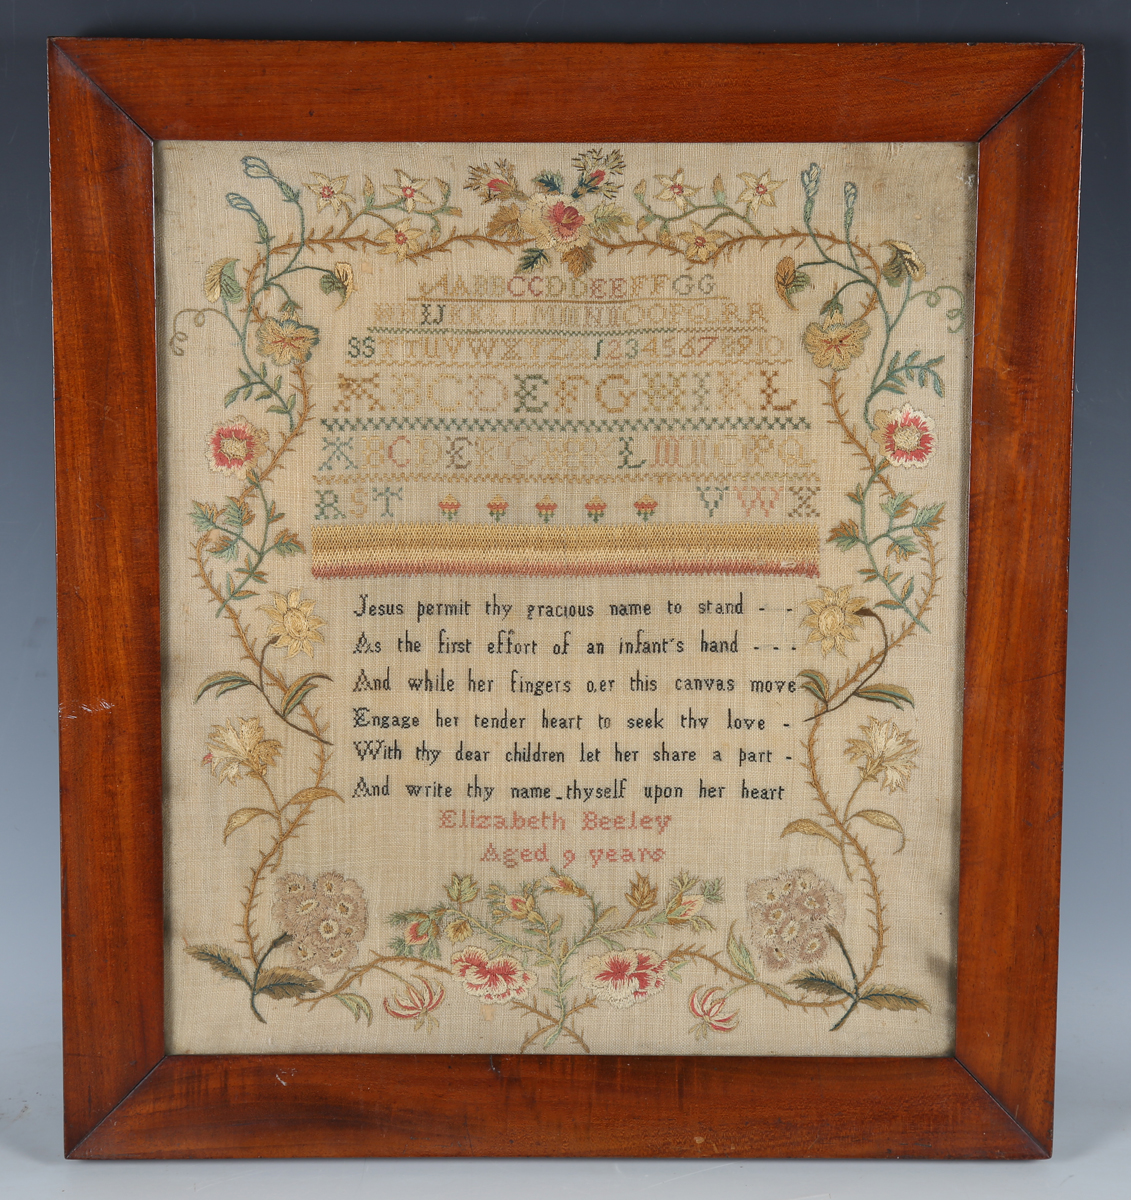 AABBCCDDEEFFGG
HHIJKKLLMMNNOOPQRR
SSTTUVWXYZ& 12345678910
ABCDEFGHIKL
ABCDEFGHIKLMNOPQ
RST VWX
Jesus permit thy gracious name to stand - -
As the first effort of an infant's hand - - -
And while her fingers o,er this canvas move
Engage her tender heart to seek thy love -
With thy dear children let her share a part -
And write thy name - thyself upon her heart
Elizabeth Beeley
Aged 9 years